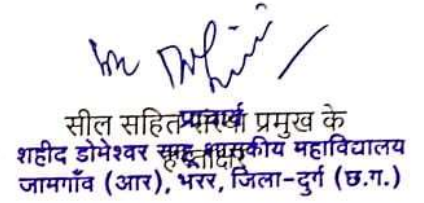 सील सहित संस्था प्रमुख के
हस्ताक्षर
प्राचार्य
शहीद डोमेश्वर साहू शासकीय महाविद्यालय
जामगॉंव (आर), भरर, जिला-दुर्ग (छ.ग.)